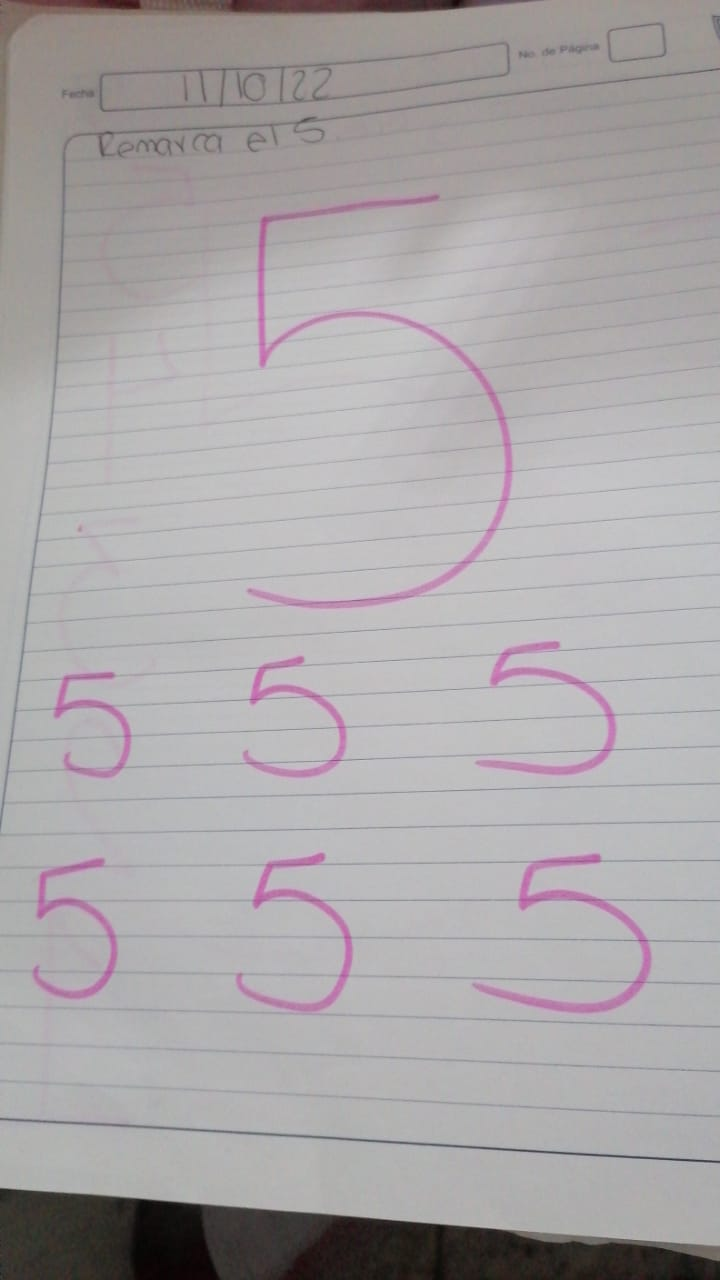 Fecha 11/10/22 No. de Página
Remarca el 5
5
5 5 5
5 5 5